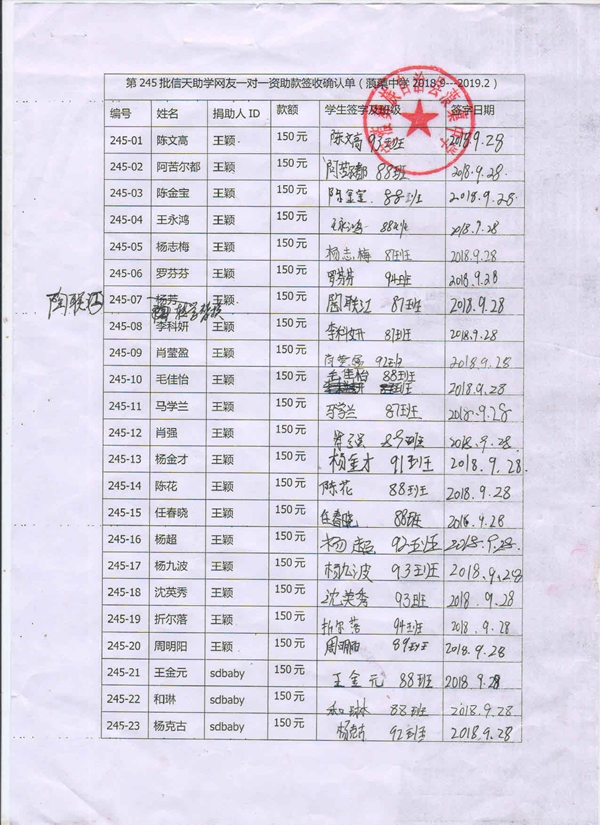 第 245 批信天助学网友一对一资助款签收确认单（蒗蕖中学 2018.9---2019.2）
编号 姓名 捐助人 ID 款额 学生签字及班级 签字日期
245-01 陈文高 王颖 150 元 陈文高 93班 2018.9.28
245-02 阿苦尔都 王颖 150 元 阿苦尔都 88班 2018.9.28
245-03 陈金宝 王颖 150 元 陈金宝 88班 2018.9.28
245-04 王永鸿 王颖 150 元 王永鸿 88班 2018.9.28
245-05 杨志梅 王颖 150 元 杨志梅 81班 2018.9.28
245-06 罗芬芬 王颖 150 元 罗芬芬 94班 2018.9.28
陶联江 245-07 杨芳 王颖 150 元 陶联江 87班 2018.9.28
245-08 李科妍 王颖 150 元 李科妍 81班 2018.9.28
245-09 肖莹盈 王颖 150 元 92班 2018.9.28
245-10 毛佳怡 王颖 150 元 毛佳怡 88班 2018.9.28
245-11 马学兰 王颖 150 元 马学兰 87班 2018.9.28
245-12 肖强 王颖 150 元 89班 2018.9.28
245-13 杨金才 王颖 150 元 杨金才 91班 2018.9.28
245-14 陈花 王颖 150 元 陈花 88班 2018.9.28
245-15 任春晓 王颖 150 元 任春晓 88班 2018.9.28
245-16 杨超 王颖 150 元 杨超 92班 2018.9.28
245-17 杨九波 王颖 150 元 杨九波 93班 2018.9.28
245-18 沈英秀 王颖 150 元 沈英秀 93班 2018.9.28
245-19 折尔落 王颖 150 元 折尔落 94班 2018.9.28
245-20 周明阳 王颖 150 元 周明阳 89班 2018.9.28
245-21 王金元 sdbaby 150 元 王金元 88班 2018.9.28
245-22 和琳 sdbaby 150 元 和琳 88班 2018.9.28
245-23 杨克古 sdbaby 150 元 杨克古 92班 2018.9.28